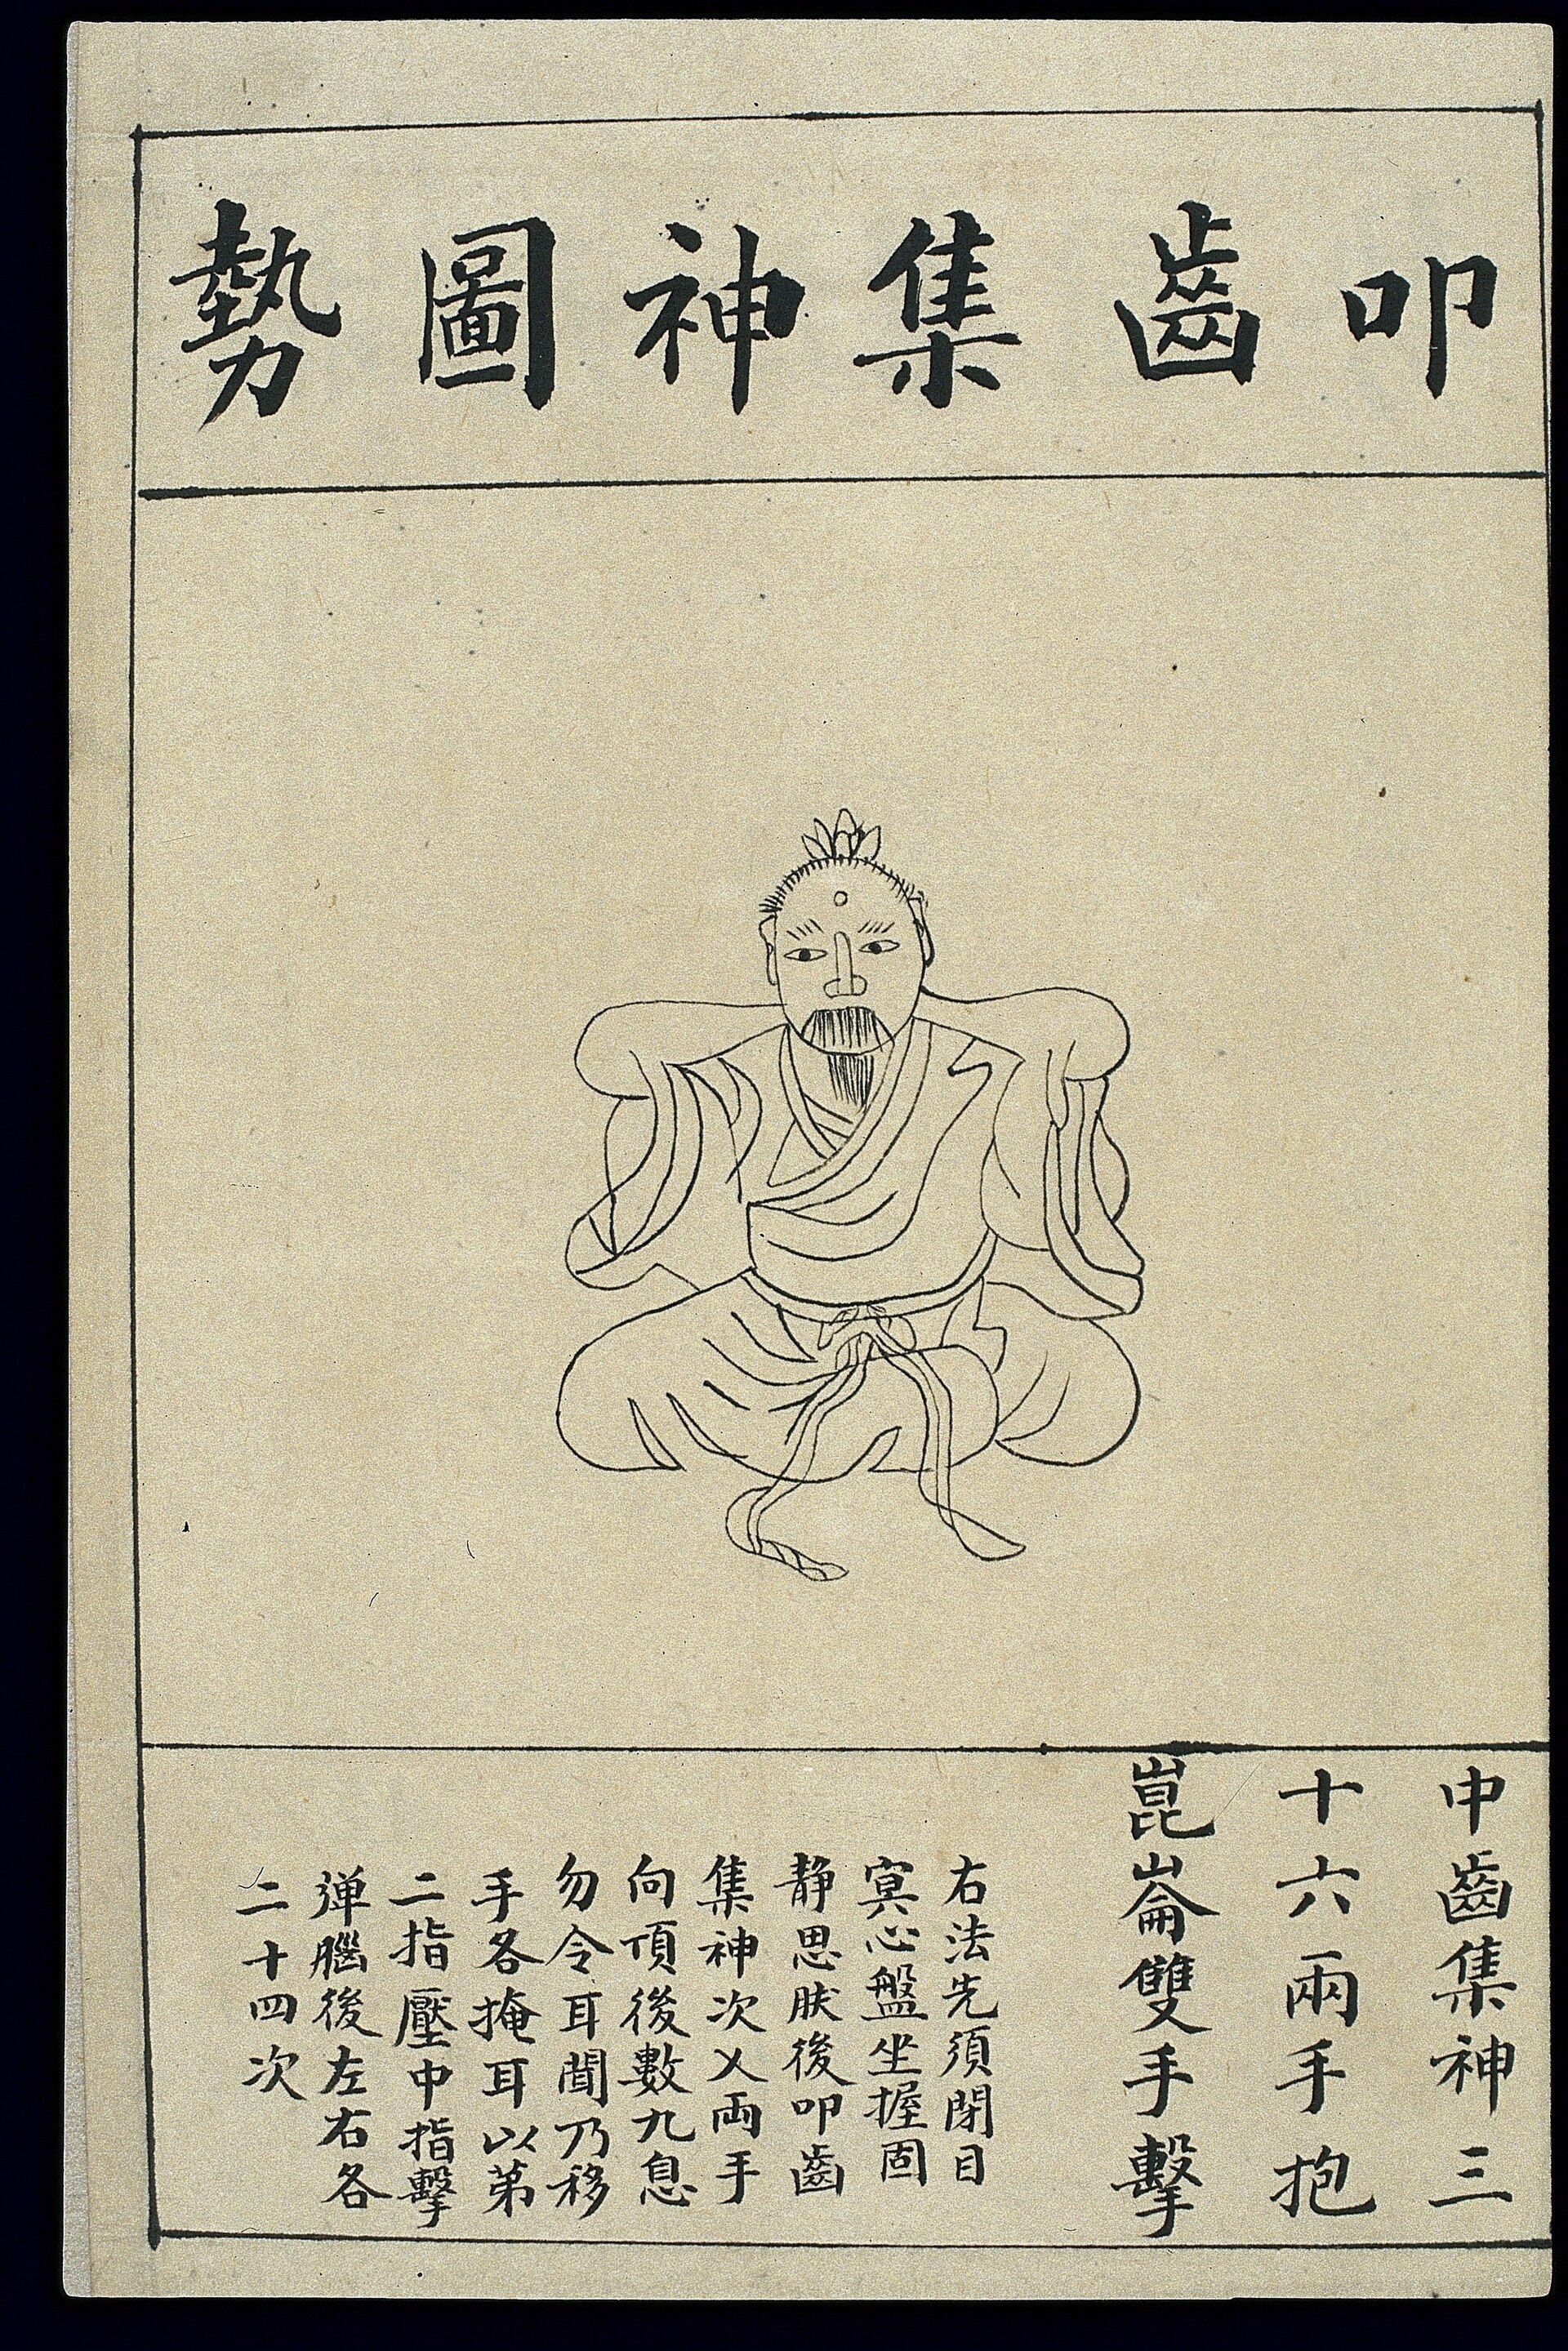 叩齒集神圖勢
中齒集神三
十六兩手抱
崑崙雙手擊
右法先須閉目
冥心盤坐握固
静思肰後叩齒
集神次乂両手
向頂後數九息
勿令耳聞乃移
手各掩耳以苐
二指壓中指擊
弾腦後左右各
二十四次